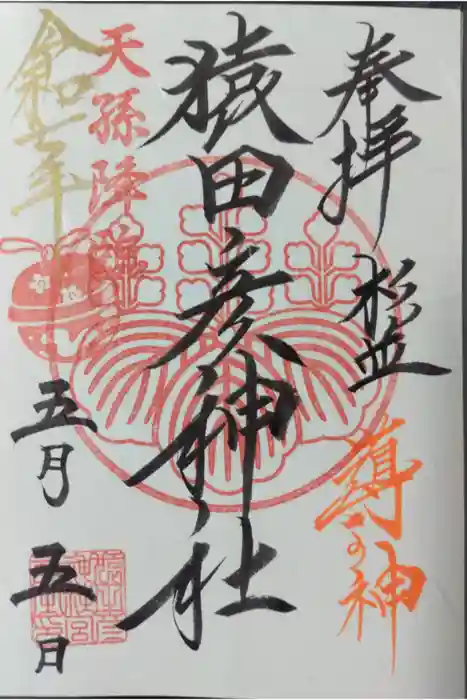 奉拝
杉並
導の神
猿田彦神社
天孫降臨
令和七年
五月
五日